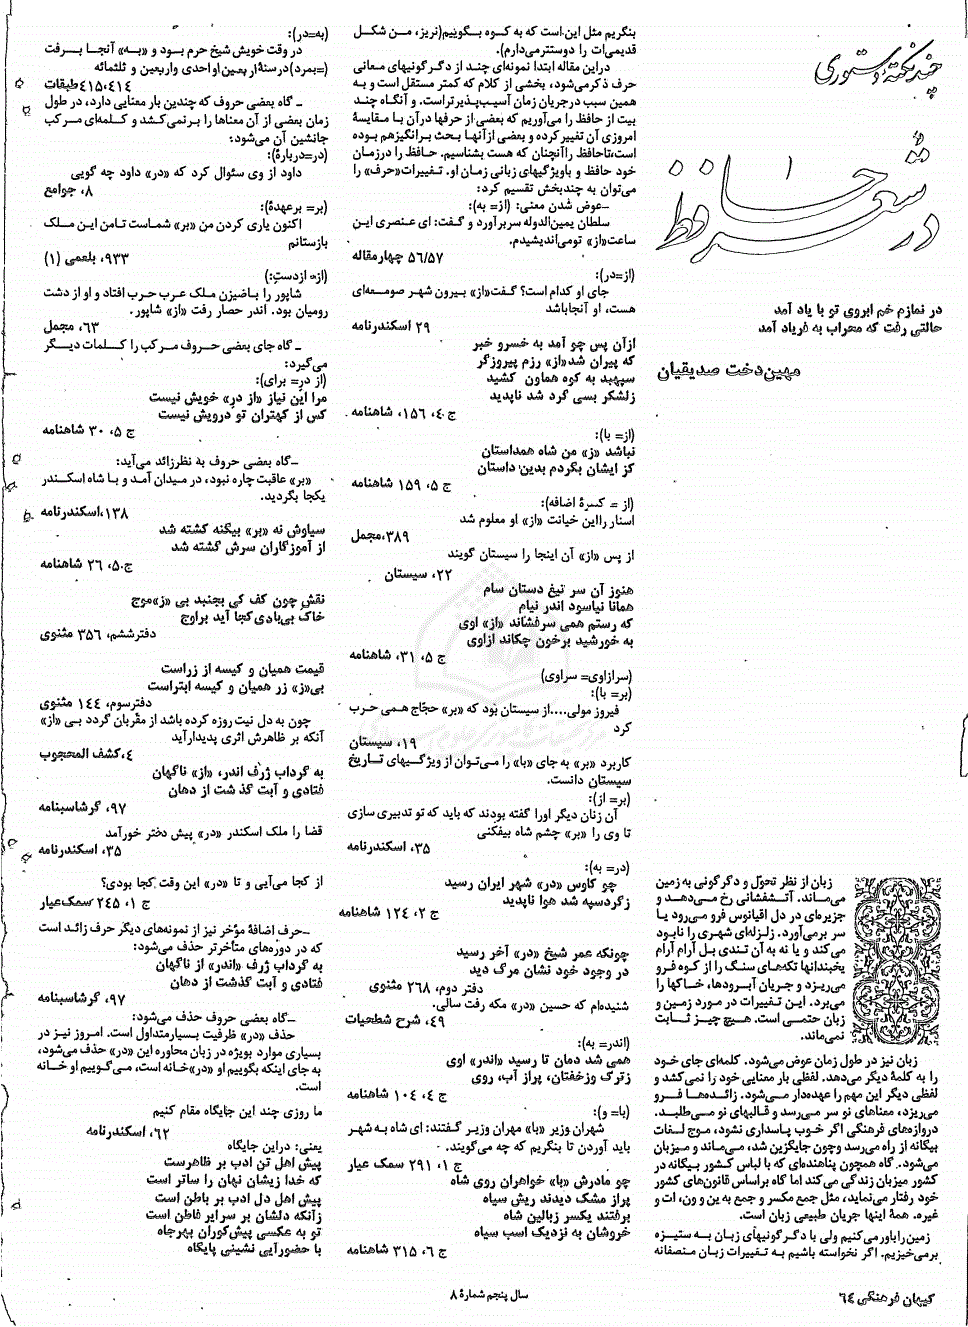 چند نکتهٔ دستوری
در شعر حافظ ۱
در نمازم خم ابروی تو با یاد آمد
حالتی رفت که محراب به فریاد آمد
مهین‌دخت صدیقیان
زبان از نظر تحوّل و دگرگونی به زمین
می‌ماند. آتشفشانی رخ می‌دهد و
جزیره‌ای در دل اقیانوس فرو می‌رود یا
سر برمی‌آورد. زلزله‌ای شهری را نابود
می‌کند و یا نه به آن تندی بل آرام آرام
یخبندانها تکه‌های سنگ را از کوه فرو
می‌ریزد و جریان آبرودها، خاکها را
می‌برد. این تغییرات در مورد زمین و
زبان حتمی است. هیچ چیز ثابت
نمی‌ماند.
زبان نیز در طول زمان عوض می‌شود. کلمه‌ای جای خود
را به کلمهٔ دیگر می‌دهد. لفظی بار معنایی خود را نمی‌کشد و
لفظی دیگر این مهم را عهده‌دار می‌شود. زائده‌ها فرو
می‌ریزد، معناهای نو سر می‌رسد و قالبهای نو می‌طلبد.
دروازه‌های فرهنگی اگر خوب پاسداری نشود، موج لغات
بیگانه از راه می‌رسد وچون جایگزین شد، می‌ماند و میزبان
می‌شود. گاه همچون پناهنده‌ای که با لباس کشور بیگانه در
کشور میزبان زندگی می‌کند اما گاه براساس قانون‌های کشور
خود رفتار می‌نماید، مثل جمع مکسر و جمع به ین و ون، ات و
غیره. همهٔ اینها جریان طبیعی زبان است.
زمین راباور می‌کنیم ولی با دگرگونیهای زبان به ستیزه
برمی‌خیزیم. اگر نخواسته باشیم به تغییرات زبان منصفانه
بنگریم مثل این است که به کوه بگوییم (نریز، من شکل
قدیمی‌ات را دوستترمی‌دارم).
دراین مقاله ابتدا نمونه‌ای چند از دگرگونیهای معانی
حرف ذکرمی‌شود، بخشی از کلام که کمتر مستقل است و به
همین سبب درجریان زمان آسیب‌پذیرتراست. و آنگاه چند
بیت از حافظ را می‌آوریم که بعضی از حرفها درآن با مقایسهٔ
امروزی آن تغییر کرده و بعضی ازآنها بحث برانگیزهم بوده
است،تاحافظ راآنچنان که هست بشناسیم. حافظ را درزمان
خود حافظ و باویژگیهای زبانی زمان او. تغییرات«حرف» را
می‌توان به چندبخش تقسیم کرد:
ـعوض شدن معنی: (از= به):
سلطان یمین‌الدوله سربرآورد و گفت: ای عنصری این
ساعت«از» تومی‌اندیشیدم.
۵۶/۵۷ چهارمقاله
(از=در):
جای او کدام است؟ گفت«از» بیرون شهر صومعه‌ای
هست، او آنجاباشد
۲۹ اسکندرنامه
ازآن پس چو آمد به خسرو خبر
که پیران شد«از» رزم پیروزگر
سپهبد به کوه هماون کشید
زلشکر بسی گرد شد ناپدید
ج ۴، ۱۵۶، شاهنامه
(از= با):
نباشد «ز» من شاه همداستان
کز ایشان بگردم بدین داستان
ج ۵، ۱۵۹ شاهنامه
(از = کسرهٔ اضافه):
استار رااین خیانت «از» او معلوم شد
۳۸۹،مجمل
از پس «از» آن اینجا را سیستان گویند
۲۲، سیستان
هنوز آن سر تیغ دستان سام
همانا نیاسود اندر نیام
که رستم همی سرفشاند «از» اوی
به خورشید برخون چکاند ازاوی
ج ۵، ۳۱، شاهنامه
(سرازاوی= سراوی)
(بر= با):
فیروز مولی....از سیستان بود که «بر» حجّاج همی حرب
کرد
۱۹، سیستان
کاربرد «بر» به جای «با» را می‌توان از ویژگیهای تاریخ
سیستان دانست.
(بر= از):
آن زنان دیگر اورا گفته بودند که باید که تو تدبیری سازی
تا وی را «بر» چشم شاه بیفکنی
۳۵، اسکندرنامه
(در= به):
چو کاوس «در» شهر ایران رسید
زگردسپه شد هوا ناپدید
ج ۲، ۱۲۴ شاهنامه
چونکه عمر شیخ «در» آخر رسید
در وجود خود نشان مرگ دید
دفتر دوم، ۲۶۸ مثنوی
شنیده‌ام که حسین «در» مکه رفت سالی.
۴۹، شرح شطحیات
(اندر= به):
همی شد دمان تا رسید «اندر» اوی
زترگ وزخفتان، پراز آب، روی
ج ۴، ۱۰۴ شاهنامه
(با= و):
شهران وزیر «با» مهران وزیر گفتند: ای شاه به شهر
باید آوردن تا بنگریم که چه می‌گویند.
ج ۱، ۲۹۱ سمک عیار
چو مادرش «با» خواهران روی شاه
پراز مشک دیدند ریش سیاه
برفتند یکسر زبالین شاه
خروشان به نزدیک اسب سیاه
ج ۶، ۳۱۵ شاهنامه
(به=در):
در وقت خویش شیخ حرم بود و «به» آنجا برفت
(=بمرد)درسنهٔ اربعین اواحدی واربعین و ثلثمائه
۴۱۵،۴۱۴طبقات
ـ گاه بعضی حروف که چندین بار معنایی دارد، در طول
زمان بعضی از آن معناها را برنمی‌کشد و کلمه‌ای مرکب
جانشین آن می‌شود:
(در=دربارهٔ):
داود از وی سئوال کرد که «در» داود چه گویی
۸، جوامع
(بر= برعهدهٔ):
اکنون یاری کردن من «بر» شماست تامن این ملک
بازستانم
۹۳۳، بلعمی (۱)
(از= ازدستِ):
شاپور را باضیزن ملک عرب حرب افتاد و او از دشت
رومیان بود. اندر حصار رفت «از» شاپور.
۶۳، مجمل
ـ گاه جای بعضی حروف مرکب را کلمات دیگر
می‌گیرد:
(از درِ= برای):
مرا این نیاز «از درِ» خویش نیست
کس از کهتران تو درویش نیست
ج ۵، ۳۰ شاهنامه
ـگاه بعضی حروف به نظرزائد می‌آید:
«بر» عاقبت چاره نبود، در میدان آمد و با شاه اسکندر
یکجا بگردید.
۱۳۸،اسکندرنامه
سیاوش نه «بر» بیگنه کشته شد
از آموزگاران سرش گشته شد
ج۵، ۲۶ شاهنامه
نقش چون کف کی بجنبد بی «ز»موج
خاک بی‌بادی کجا آید براوج
دفترششم، ۳۵۶ مثنوی
قیمت همیان و کیسه از زراست
بی«ز» زر همیان و کیسه ابتراست
دفترسوم، ۱۴۴ مثنوی
چون به دل نیت روزه کرده باشد از مقرّبان گردد بی «از»
آنکه بر ظاهرش اثری پدیدارآید
۴،کشف المحجوب
به گرداب ژرف اندر، «از» ناگهان
فتادی و آبت گذشت از دهان
۹۷، گرشاسبنامه
قضا را ملک اسکندر «در» پیش دختر خورآمد
۳۵، اسکندرنامه
از کجا می‌آیی و تا «در» این وقت کجا بودی؟
ج ۱، ۲۴۵ سمک‌عیار
ـحرف اضافهٔ مؤخر نیز از نمونه‌های دیگر حرف زائد است
که در دوره‌های متأخرتر حذف می‌شود:
به گرداب ژرف «اندر» از ناگهان
فتادی و آبت گذشت از دهان
۹۷، گرشاسبنامه
ـگاه بعضی حروف حذف می‌شود:
حذف «در» ظرفیت بسیارمتداول است. امروز نیز در
بسیاری موارد بویژه در زبان محاوره این «در» حذف می‌شود،
به جای اینکه بگوییم او «در»خانه است، می‌گوییم او خانه
است.
ما روزی چند این جایگاه مقام کنیم
۶۲، اسکندرنامه
یعنی: دراین جایگاه
پیش اهل تن ادب بر ظاهرست
که خدا زیشان نهان را ساتر است
پیش اهل دل ادب بر باطن است
زآنکه دلشان بر سرایر فاطن است
تو به عکسی پیش‌کوران بهرجاه
با حضورآیی نشینی پایگاه
کیهان فرهنگی ۶۴
سال پنجم شمارهٔ ۸